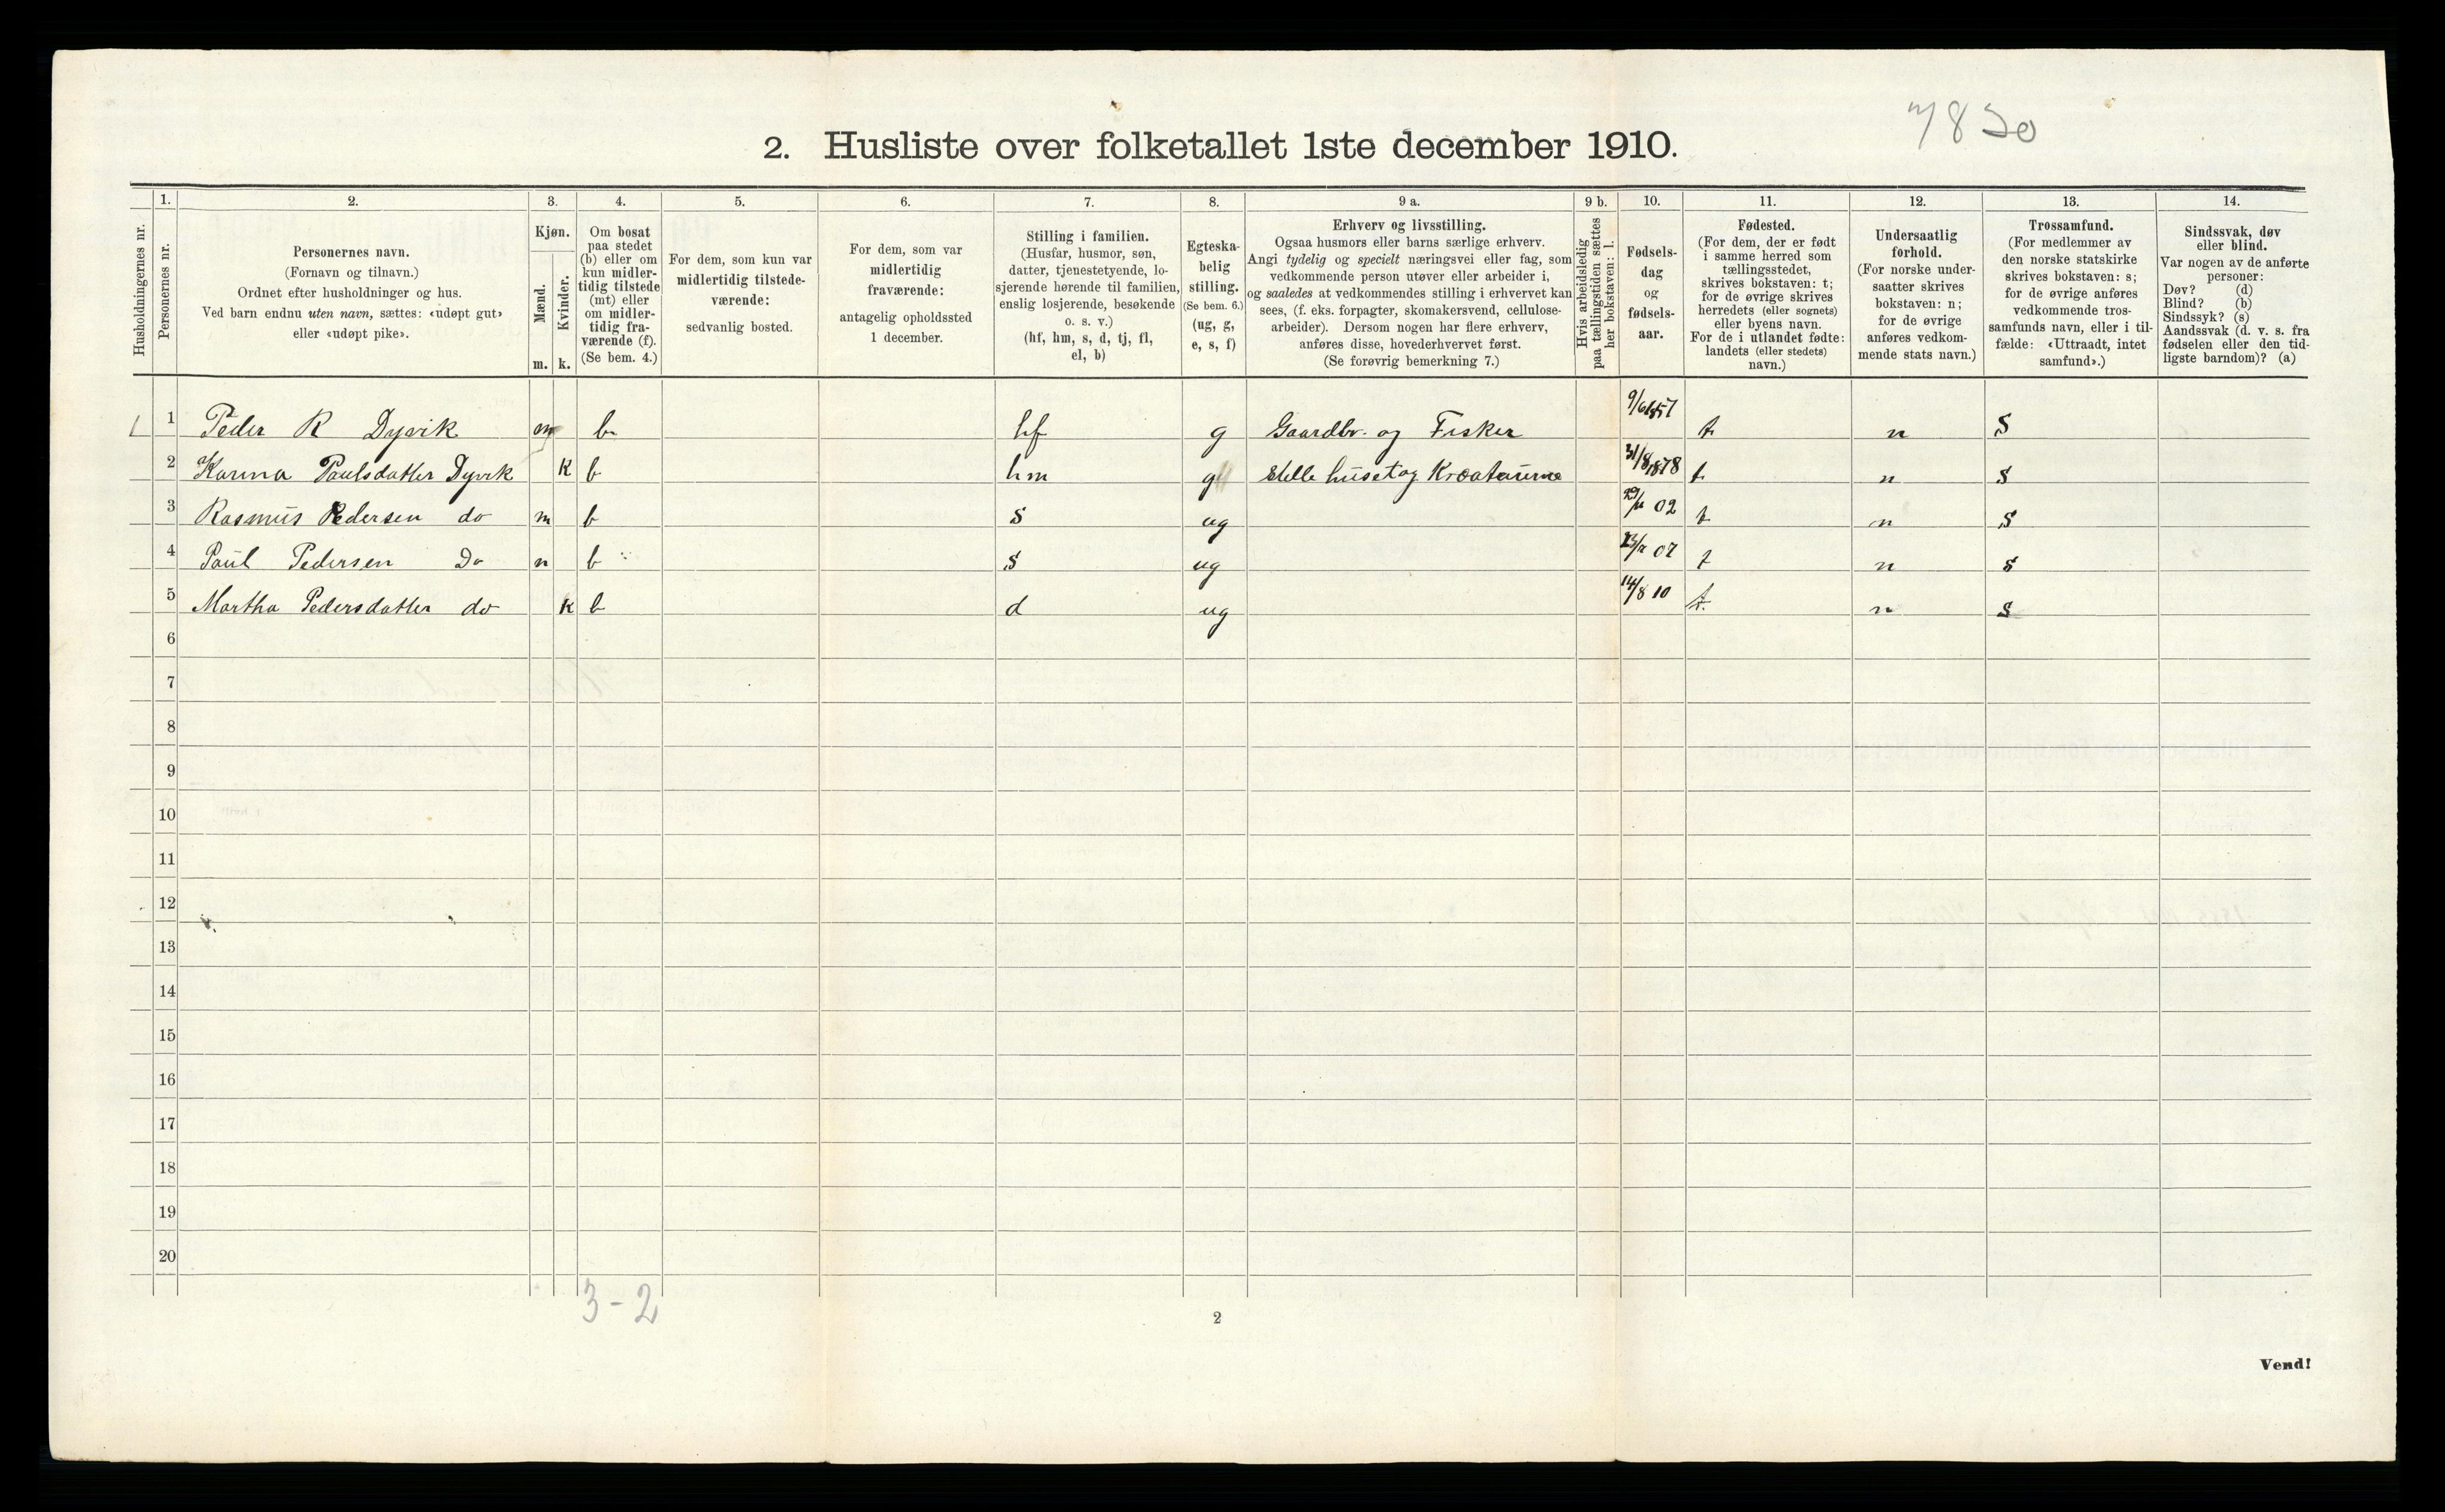 7830
2. Husliste over folketallet 1ste december 1910.
Husholdningernes nr.
1.
Personernes nr.
2.
Personernes navn.
(Fornavn og tilnavn.)
Ordnet efter husholdninger og hus.
Ved barn endnu uten navn, sættes: «udøpt gut»
eller «udøpt pike».
3.
Kjøn.
Mænd.
m.
Kvinder.
k.
4.
Om bosat
paa stedet
(b) eller om
kun midler-
tidig tilstede
(mt) eller
om midler-
tidig fra-
værende (f).
(Se bem. 4.)
5.
For dem, som kun var
midlertidig tilstede-
værende:
sedvanlig bosted.
6.
For dem, som var
midlertidig
fraværende:
antagelig opholdssted
1 december.
7.
Stilling i familien.
(Husfar, husmor, søn,
datter, tjenestetyende, lo-
sjerende hørende til familien,
enslig losjerende, besøkende
o. s. v.)
(hf, hm, s, d, tj, fl,
el, b)
8.
Egteska-
belig
stilling.
(Se bem. 6.)
(ug, g,
e, s, f)
9 a.
Erhverv og livsstilling.
Ogsaa husmors eller barns særlige erhverv.
Angi tydelig og specielt næringsvei eller fag, som
vedkommende person utøver eller arbeider i,
og saaledes at vedkommendes stilling i erhvervet kan
sees, (f. eks. forpagter, skomakersvend, cellulose-
arbeider). Dersom nogen har flere erhverv,
anføres disse, hovederhvervet først.
(Se forøvrig bemerkning 7.)
9 b.
Hvis arbeidsledig
paa tællingstiden sættes
her bokstaven: l.
10.
Fødsels-
dag
og
fødsels-
aar.
11.
Fødested.
(For dem, der er født
i samme herred som
tællingsstedet,
skrives bokstaven: t;
for de øvrige skrives
herredets (eller sognets)
eller byens navn.
For de i utlandet fødte:
landets (eller stedets)
navn.)
12.
Undersaatlig
forhold.
(For norske under-
saatter skrives
bokstaven: n;
for de øvrige
anføres vedkom-
mende stats navn.)
13.
Trossamfund.
(For medlemmer av
den norske statskirke
skrives bokstaven: s;
for de øvrige anføres
vedkommende tros-
samfunds navn, eller i til-
fælde: «Uttraadt, intet
samfund».)
14.
Sindssvak, døv
eller blind.
Var nogen av de anførte
personer:
Døv? (d)
Blind? (b)
Sindssyk? (s)
Aandssvak (d. v. s. fra
fødselen eller den tid-
ligste barndom)? (a)
1 1 Peder R Dyvik m b hf g Gaardbr. og Fisker 9/6 1857 t n S
2 Karina Paulsdatter Dyvik K b hm g stelle huset og Kreaturene 31/8 1878 t n S
3 Rasmus Pedersen do m b S ug 02 t n S
4 Paul Pedersen Do m b S ug 07 t n S
5 Martha Pedersdatter do K b d ug 14/8 10 t. n S
6
7
8
9
10
11
12
13
14
15
16
17
18
19
20
3-2
2
Vend!